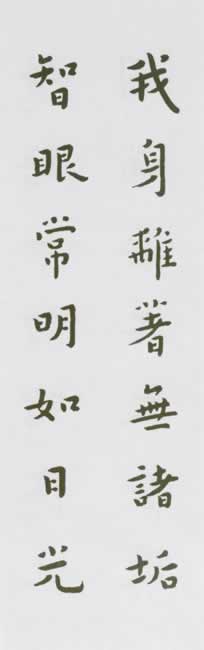 我身離著無諸垢
智眼常明如日光